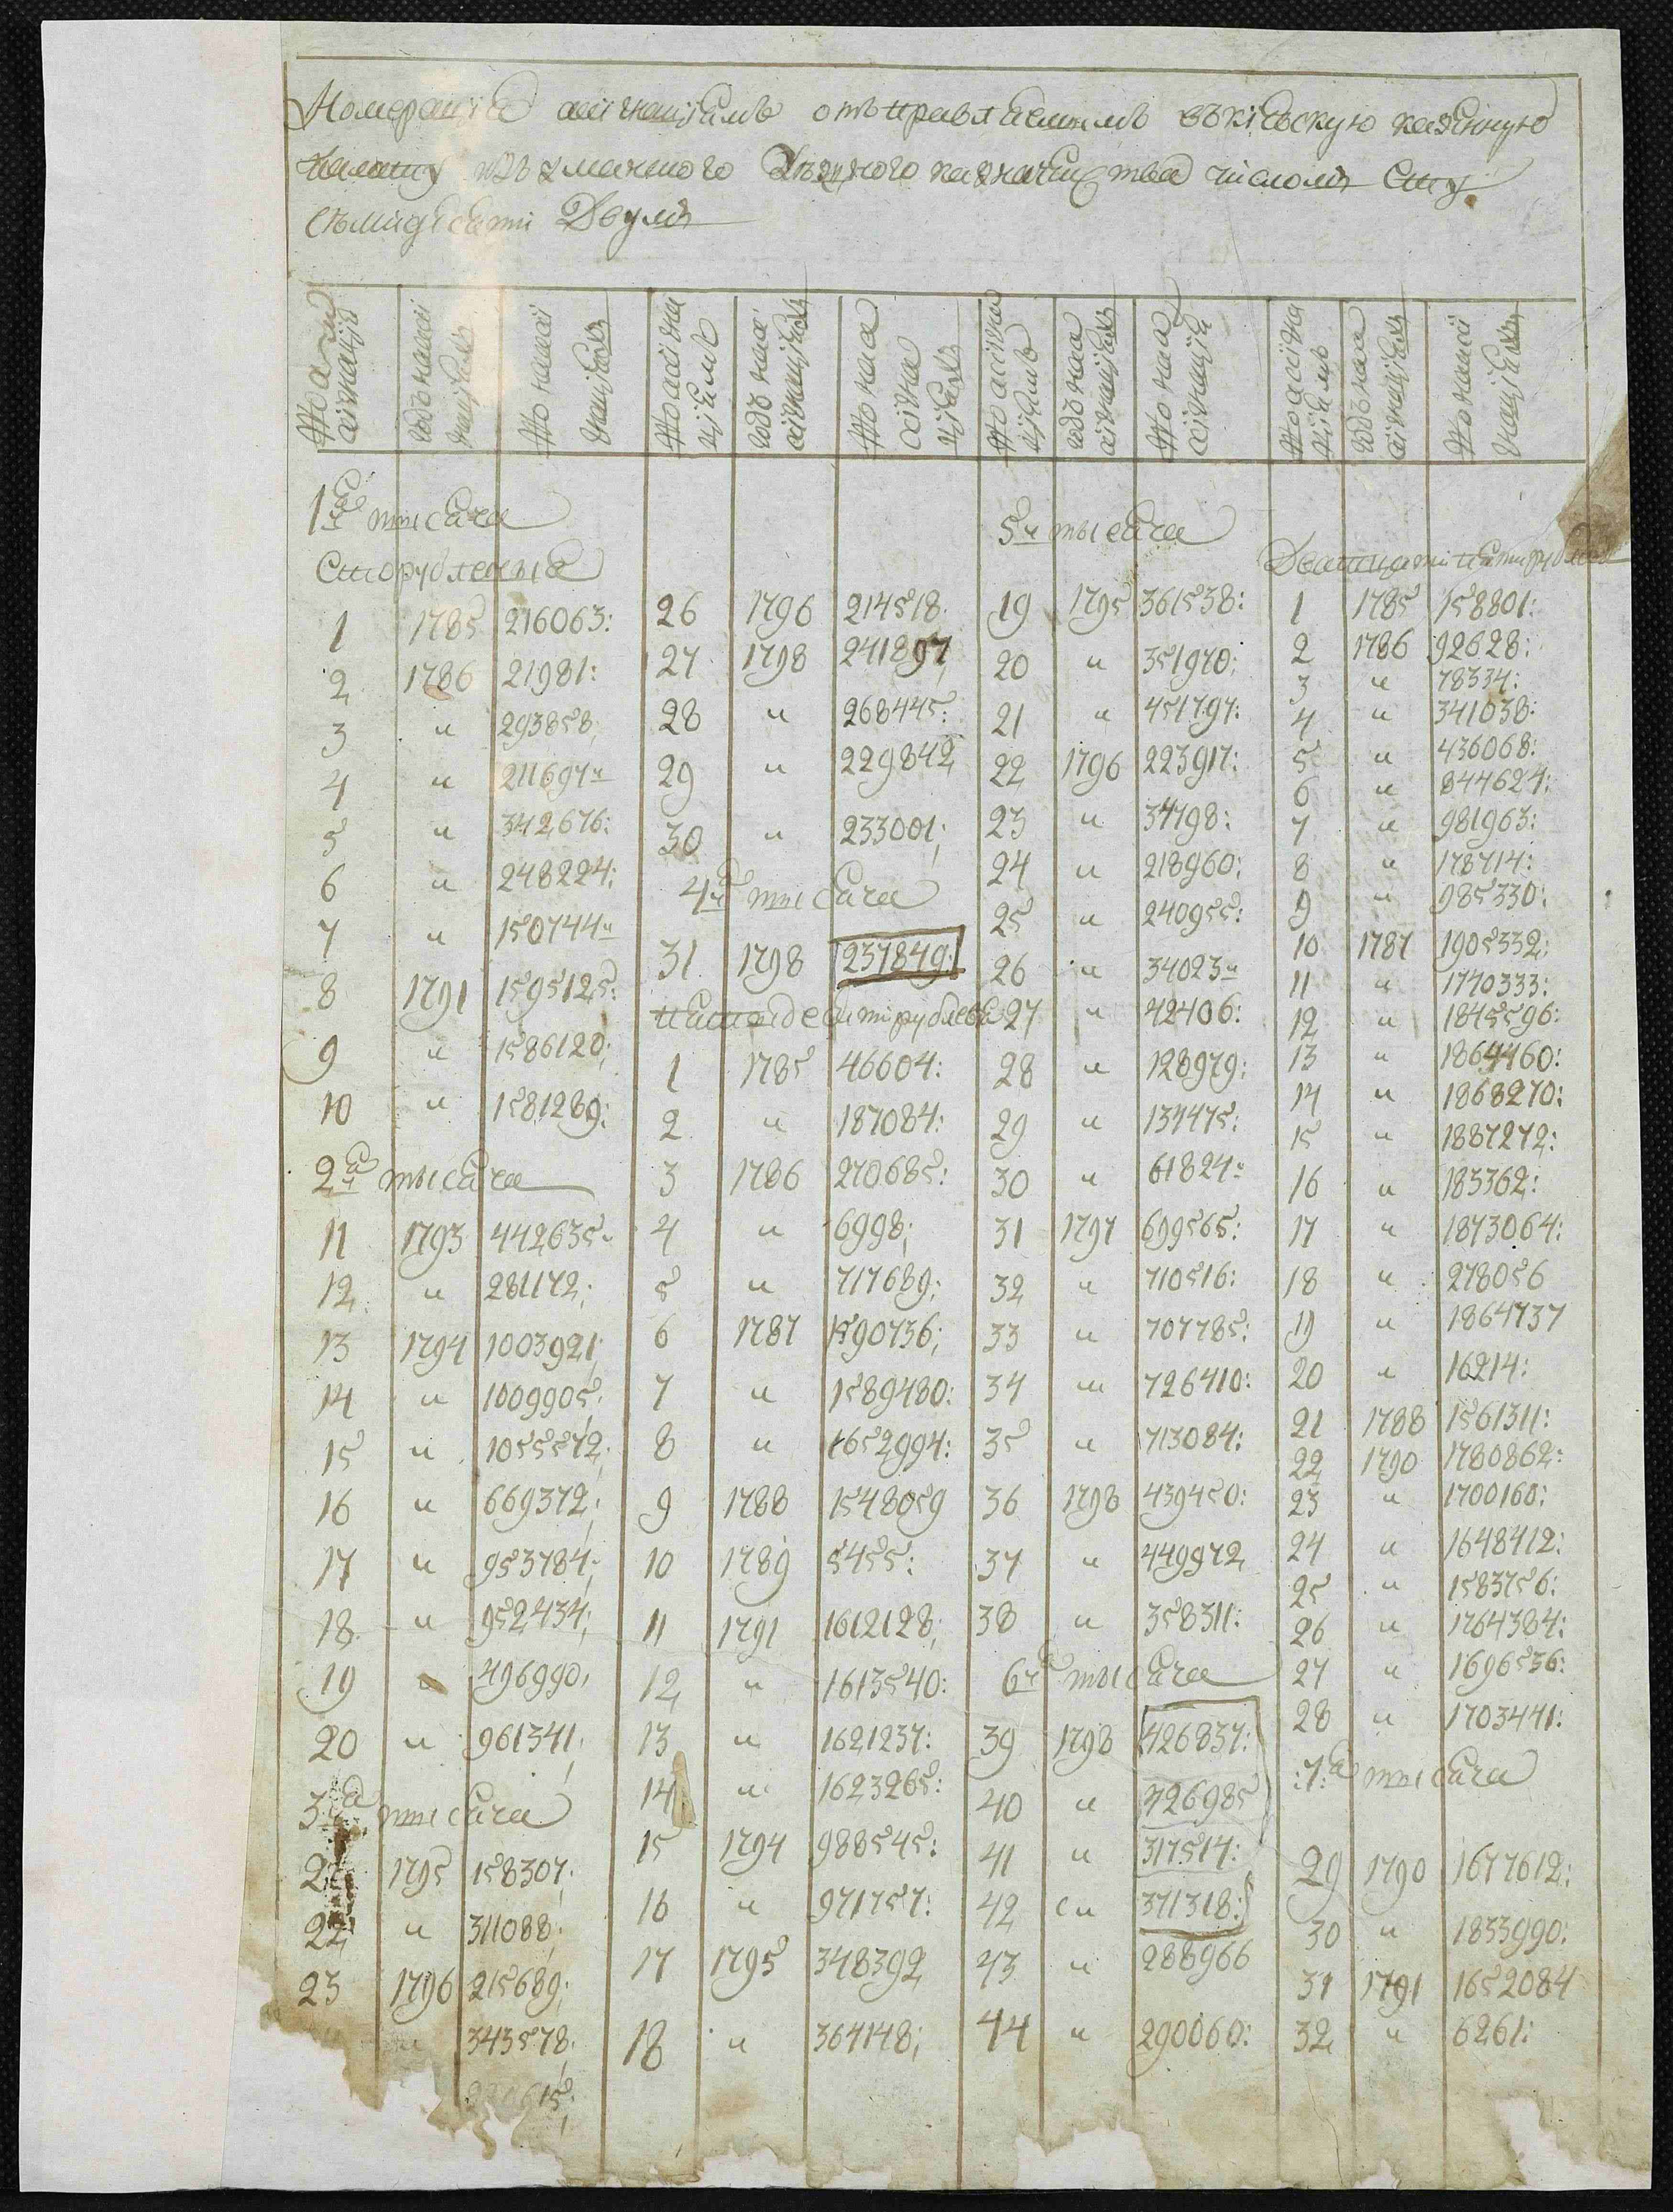 Номерація ассігнаціямъ отъправляемымъ въ кіевскую казенную
палату изъ уезного казначейства числомъ сту
съмидесяти Двумъ
1я тысяча
Сторублевыя
1 1785 216063:
2 1786 21981:
3 " 293858;
4 " 211697"
5 " 342676:
6 " 248224:
7 " 150744"
8 1791 1595125:
9 " 1586120;
10 " 1581289:
2я тысяча
11 1793 442635"
12 " 281172;
13 1794 1003921;
14 " 1009905;
15 " 1055572;
16 " 669372;
17 " 953784;
18 " 952434;
19 " 496990;
20 " 961341;
3я тысяча
21 1795 158307;
22 " 311088;
23 1796 215689;
" 343578;
26 1796 214518
27 1798 241897
28 " 268445:
29 " 229842
30 " 233001;
4я тысяча
31 1798 237849:
пятидесятирублевыя
1 1785 46604:
2 " 187084:
3 1786 270685:
4 " 6998;
5 " 717689;
6 1787 1590736;
7 " 1589480:
8 " 1652994:
9 1788 1548059
10 1789 5455:
11 1791 1612128;
12 " 1613540:
13 " 1621237:
14 " 1623265:
15 1794 988545:
16 " 971757:
17 1795 348392
18 " 364148;
5я тысяча
19 1795 361538:
20 " 351970:
21 " 451797:
22 1796 223917:
23 " 34798:
24 " 218960:
25 " 240955:
26 " 34023"
27 " 42406:
28 " 128979:
29 " 134475:
30 " 61824"
31 1797 699565:
32 " 710516:
33 " 707785:
34 " 726410:
35 " 713084:
36 1798 439450:
37 " 449972
38 " 358311:
6я тысяча
39 1798 426837:
40 " 426985
41 " 317514:
42 " 371318:
43 " 288966
44 " 290060:
Дватцатипятирублев
1 1785 158801:
2 1786 92628:
3 " 78334:
4 " 341038:
5 " 436068:
6 " 844624:
7 " 981963:
8 " 178714:
9 " 985330:
10 1787 1905332:
11 " 1740333:
12 " 1845596:
13 " 1864460:
14 " 1868270:
15 " 1887272:
16 " 183362:
17 " 1873064:
18 " 278056
19 " 1864737
20 " 16214:
21 1788 1561311:
22 1790 1780862:
23 " 1700160:
24 " 1648412:
25 " 1583756:
26 " 1764384:
27 " 1696536:
28 " 1703441:
7я тысяча
29 1790 1677612:
30 " 1833990:
31 1791 1652084
32 " 6261: